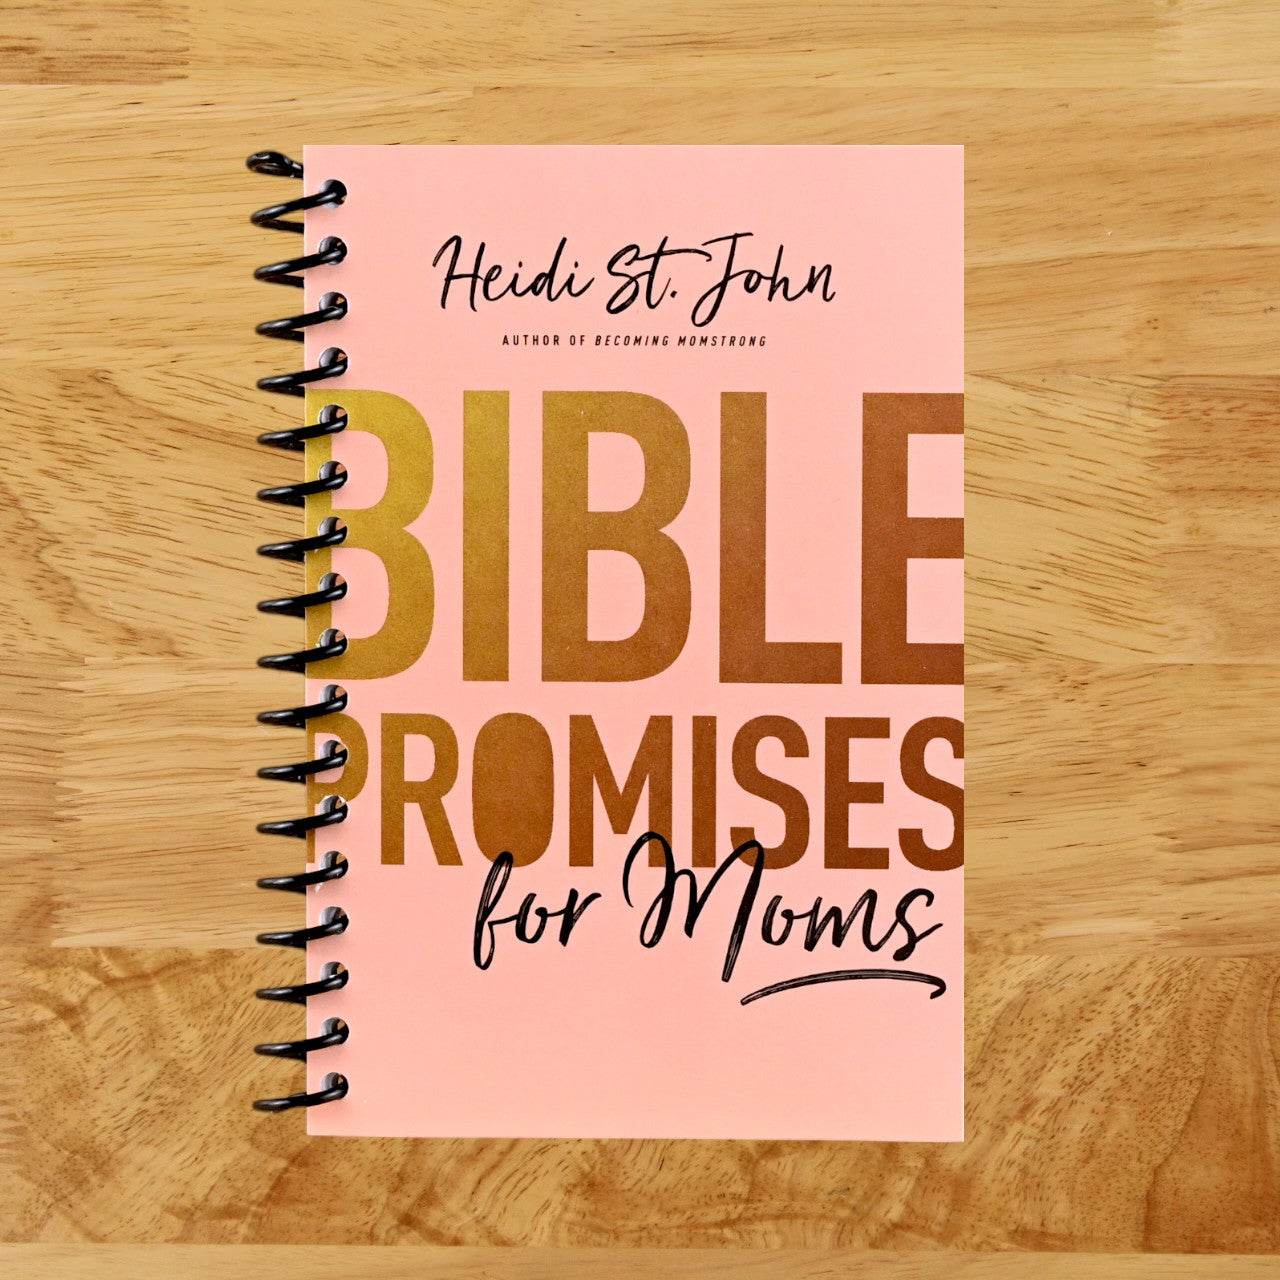 Heidi St. John
AUTHOR OF BECOMING MOMSTRONG
BIBLE
PROMISES
for Moms